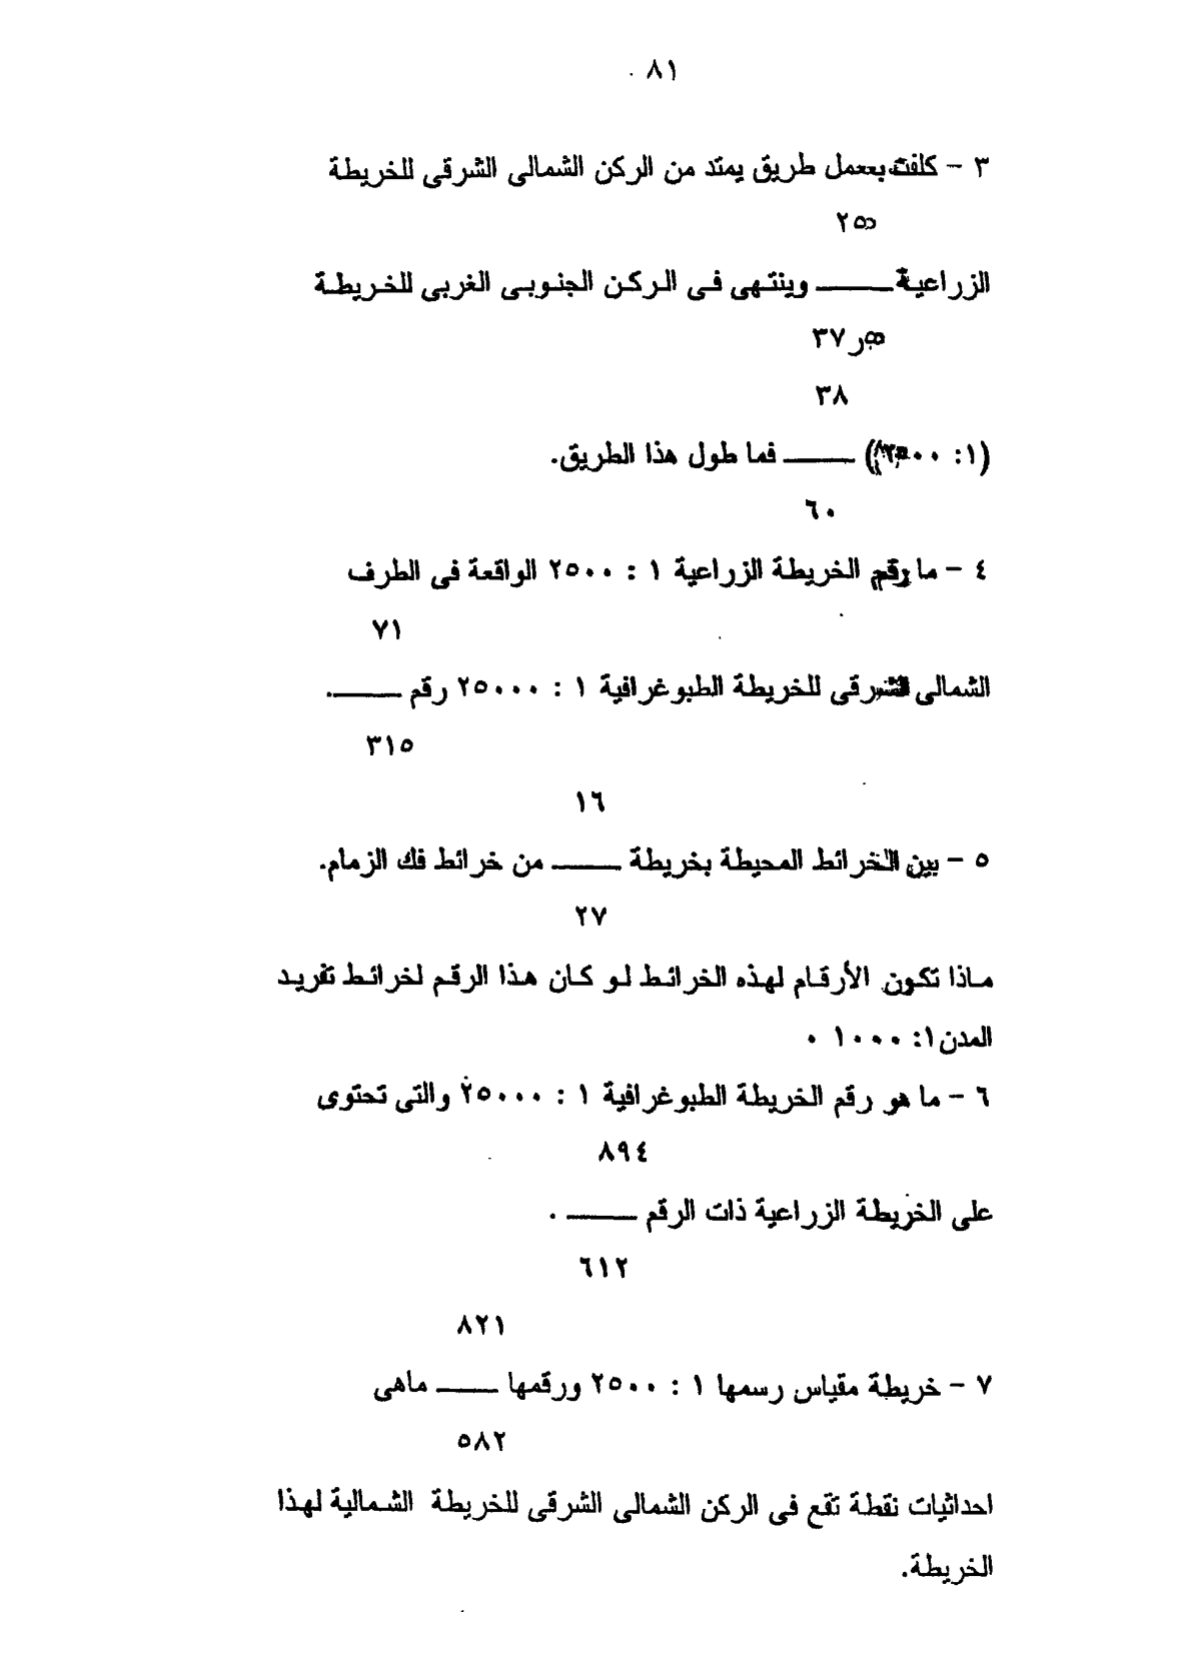 ٨١
٣ - كلفت بعمل طريق يمتد من الركن الشمالى الشرقى للخريطة
٢٥
الزراعية ــــــ وينتهى فى الركن الجنوبى الغربى للخريطة
ر٣٧
٣٨
(١: ) ــــــ فما طول هذا الطريق.
٦٠
٤ - ما رقم الخريطة الزراعية ١ : ٢٥٠٠ الواقعة فى الطرف
٧١
الشمالى الشرقى للخريطة الطبوغرافية ١ : ٢٥٠٠٠ رقم ــــــ.
٣١٥
١٦
٥ - بين الخرائط المحيطة بخريطة ــــــ من خرائط فك الزمام.
٢٧
ماذا تكون الأرقام لهذه الخرائط لو كان هذا الرقم لخرائط تفريد
المدن١: ١٠٠٠ .
٦ - ما هو رقم الخريطة الطبوغرافية ١ : ٢٥٠٠٠ والتى تحتوى
٨٩٤
على الخريطة الزراعية ذات الرقم ــــــ .
٦١٢
٨٢١
٧ - خريطة مقياس رسمها ١ : ٢٥٠٠ ورقمها ــــــ ماهى
٥٨٢
احداثيات نقطة تقع فى الركن الشمالى الشرقى للخريطة الشمالية لهذا
الخريطة.